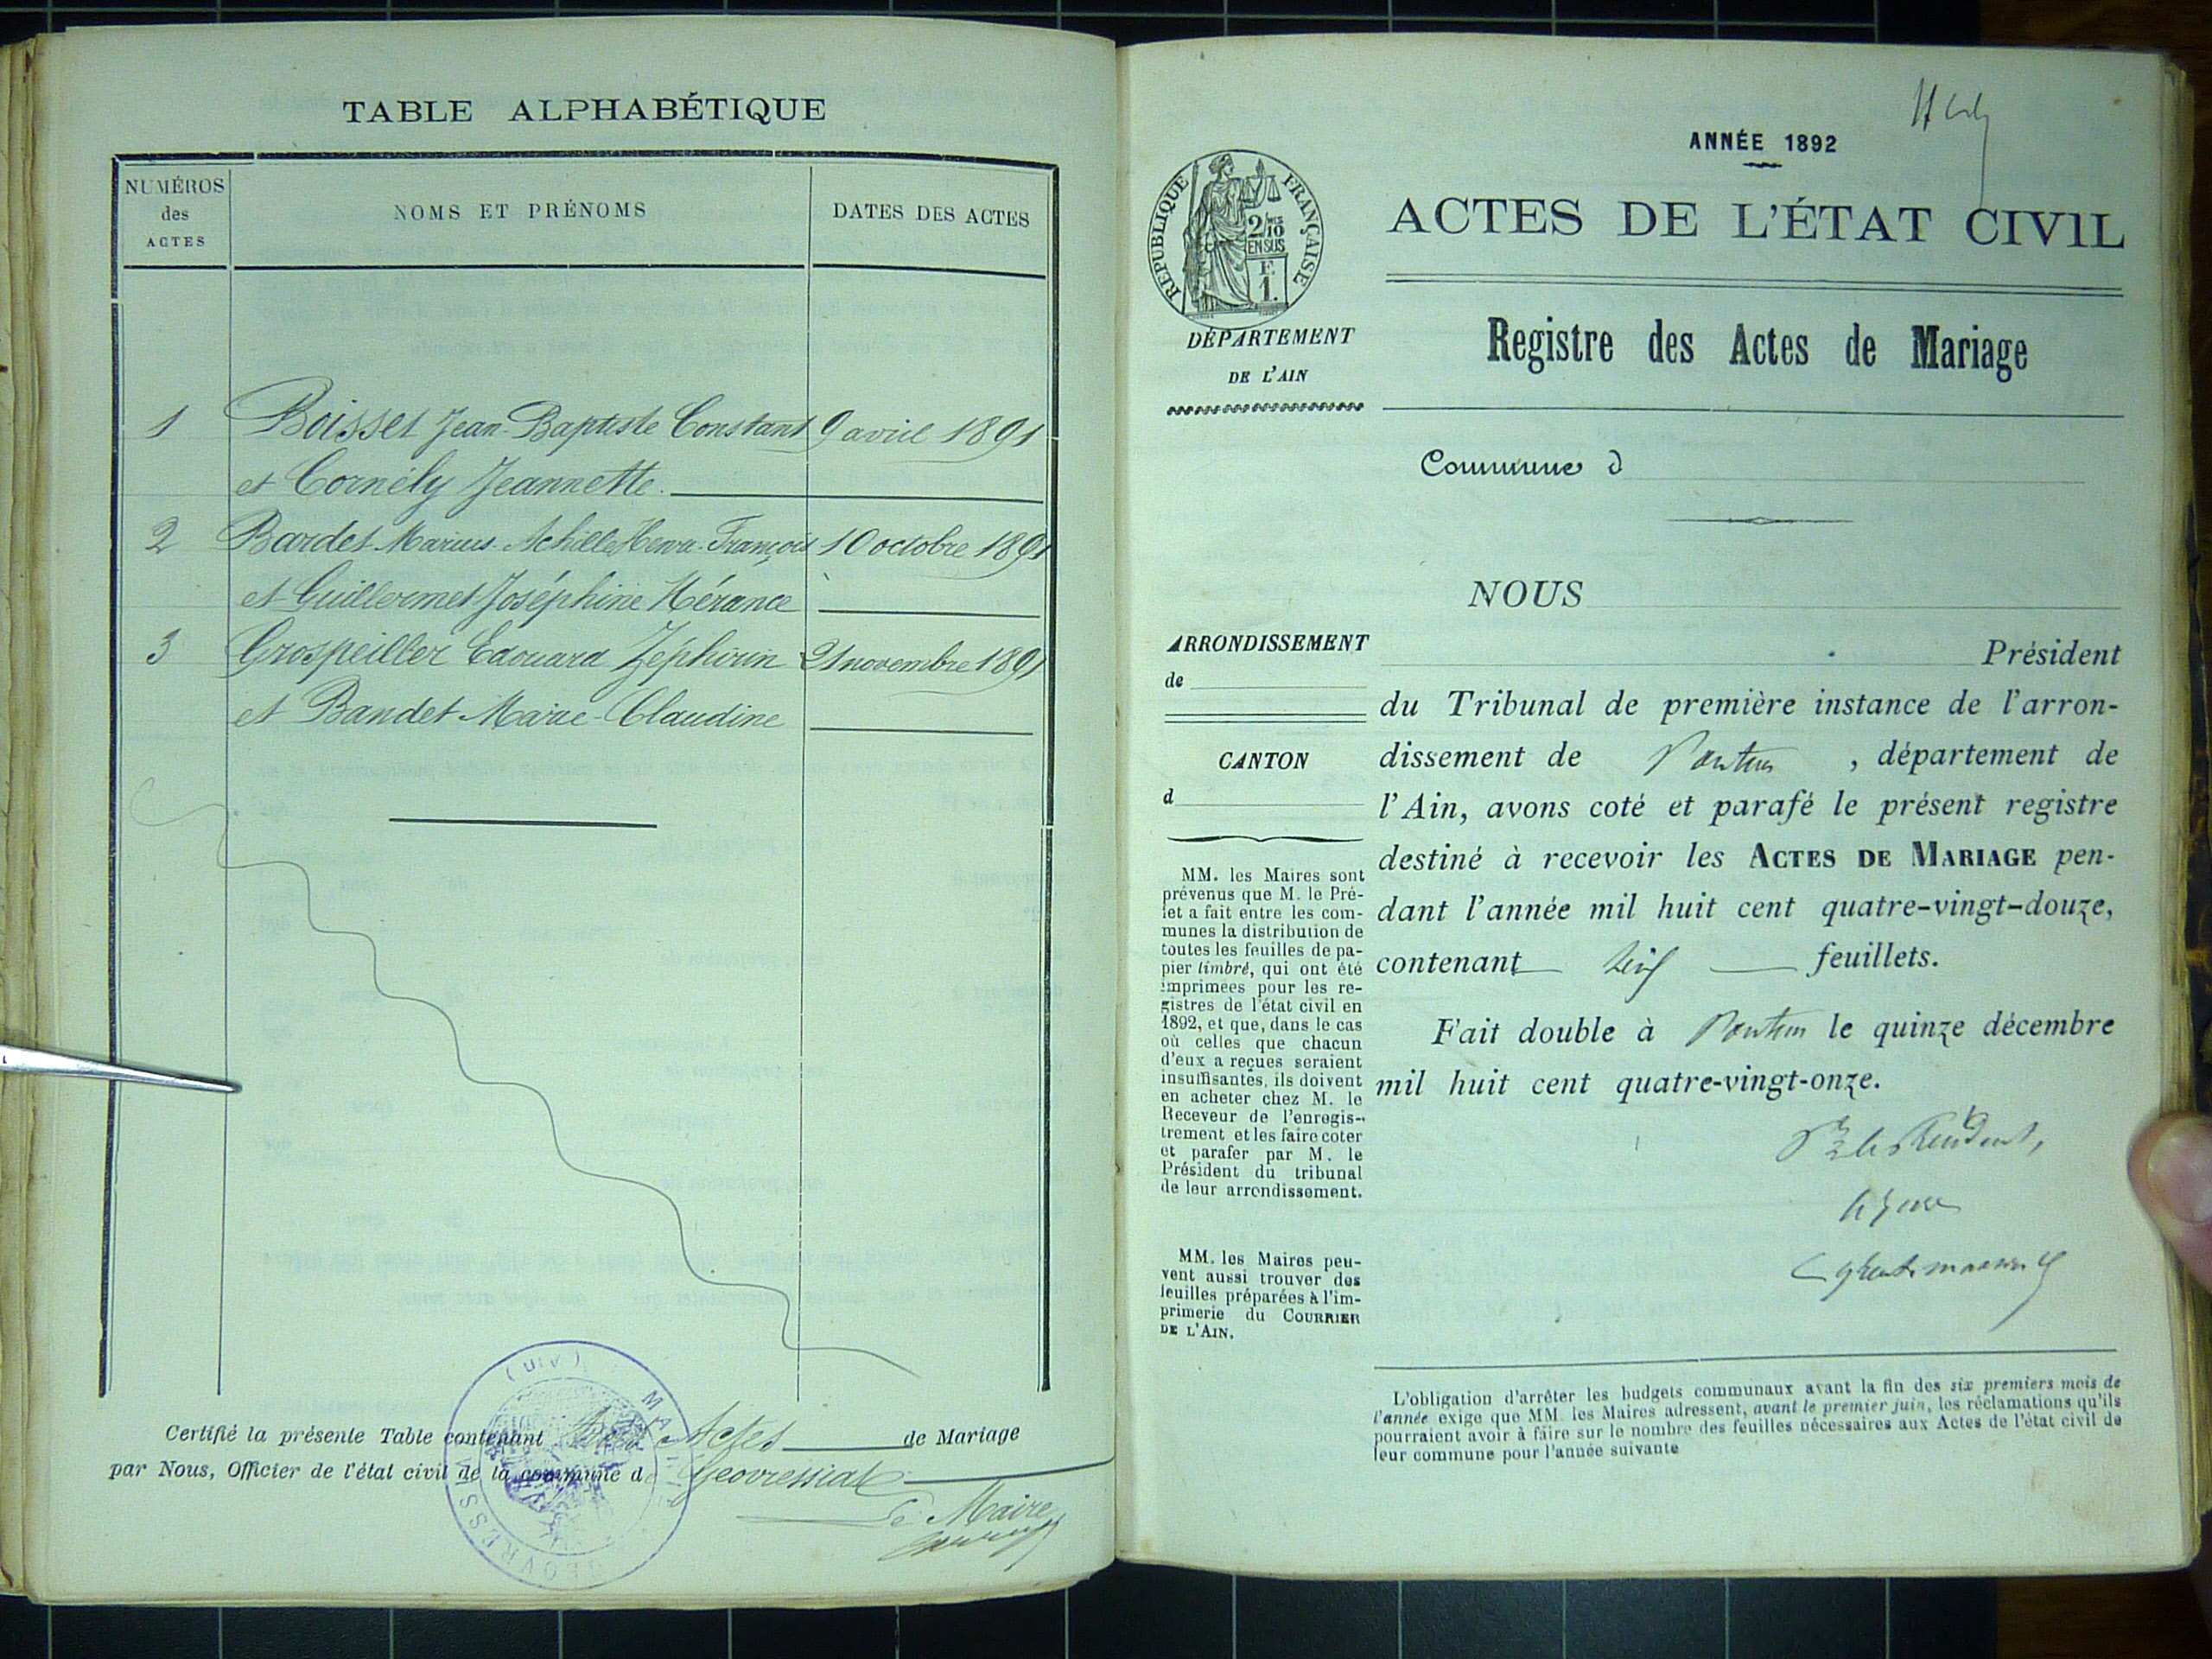 TABLE ALPHABÉTIQUE
NUMÉROS
des
ACTES
NOMS ET PRÉNOMS
DATES DES ACTES
1 Boisset Jean-Baptiste Constant 9 avril 1891
et Cornély Jeannette.
2 Bardet Marius Achille François 10 octobre 1891
et Guillermet Joséphine
3 Grospeiller Edouard Zéphirin 21 novembre 1891
et Bandet Marie-Claudine
Certifié la présente Table contenant Actes de Mariage
par Nous, Officier de l'état civil de la commune de Geovressiat
Le Maire
MAIRIE
ANNÉE 1892
RÉPUBLIQUE FRANÇAISE
2/10
EN SUS
F.
1.
ACTES DE L'ÉTAT CIVIL
DÉPARTEMENT
DE L'AIN
Registre des Actes de Mariage
Commune d
NOUS
ARRONDISSEMENT
de
CANTON
d
Président
du Tribunal de première instance de l'arron-
dissement de Nantua , département de
l'Ain, avons coté et parafé le présent registre
destiné à recevoir les ACTES DE MARIAGE pen-
dant l'année mil huit cent quatre-vingt-douze,
contenant feuillets.
Fait double à Nantua le quinze décembre
mil huit cent quatre-vingt-onze.
MM. les Maires sont
prévenus que M. le Pré-
fet a fait entre les com-
munes la distribution de
toutes les feuilles de pa-
pier timbré, qui ont été
imprimées pour les re-
gistres de l'état civil en
1892, et que, dans le cas
où celles que chacun
d'eux a reçues seraient
insuffisantes, ils doivent
en acheter chez M. le
Receveur de l'enregis-
trement et les faire coter
et parafer par M. le
Président du tribunal
de leur arrondissement.
MM. les Maires peu-
vent aussi trouver des
feuilles préparées à l'im-
primerie du COURRIER
DE L'AIN.
L'obligation d'arrêter les budgets communaux avant la fin des six premiers mois de
l'année exige que MM. les Maires adressent, avant le premier juin, les réclamations qu'ils
pourraient avoir à faire sur le nombre des feuilles nécessaires aux Actes de l'état civil de
leur commune pour l'année suivante